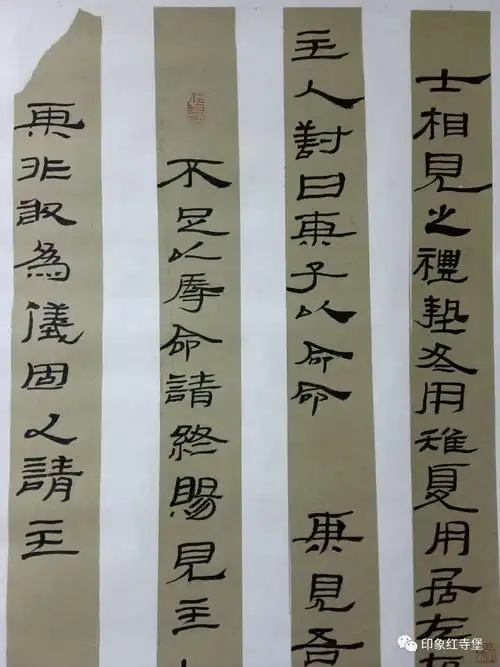 士相見之禮摯冬用雉夏用居左
主人對曰某子以命命 某見吾
不足以辱命請終賜見主
某非敢為儀固以請主
印象红寺堡